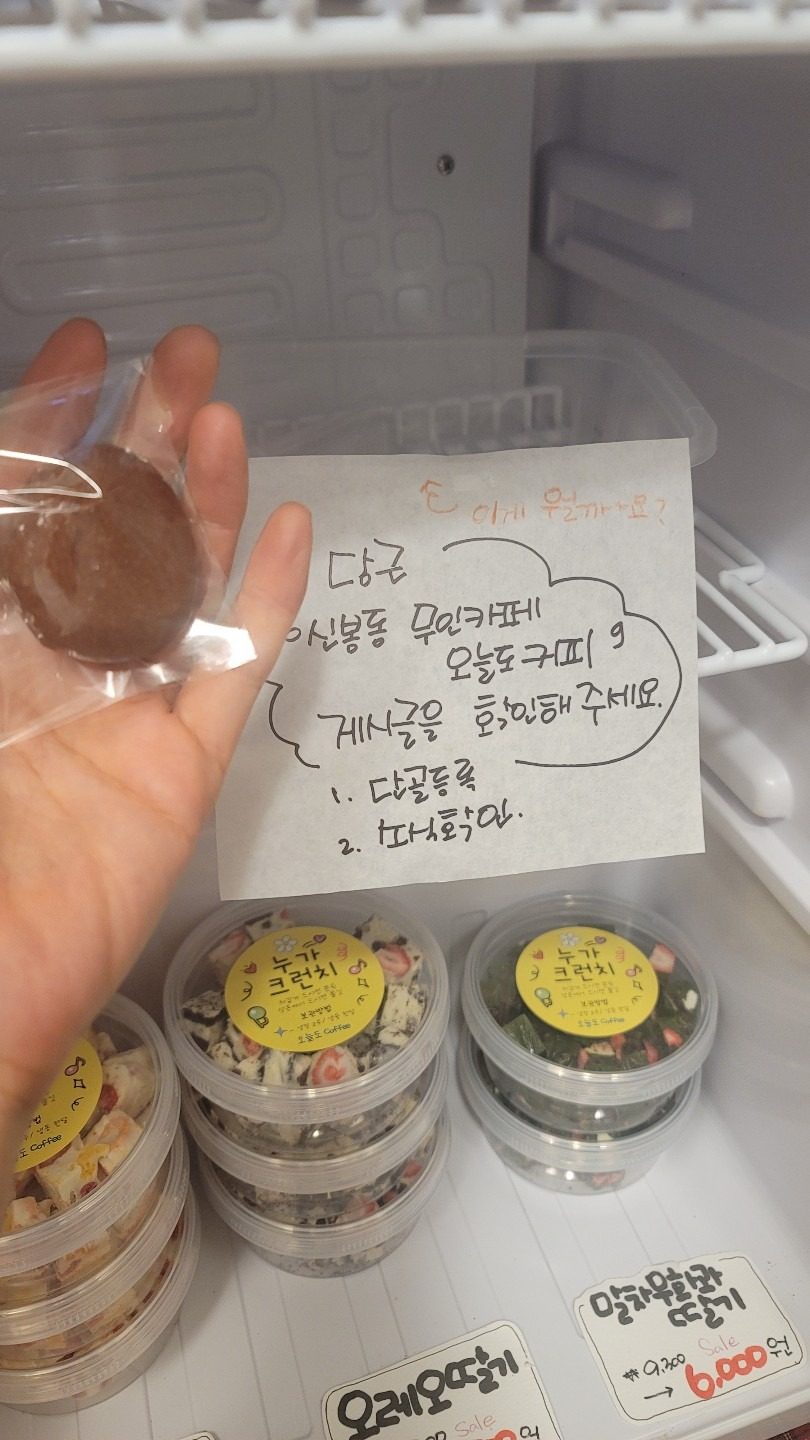 이게 뭘까~요?
당근
신봉동 무인카페
오늘도커피 의
게시글을 확인해 주세요.
1. 단골등록
2. 확인.
누가
크런치
보관방법
오늘도 Coffee
누가
크런치
보관방법
오늘도 Coffee
Coffee
말차무화과
딸기
Sale
₩ 9,200
→ 6,000원
오레오딸기
Sale